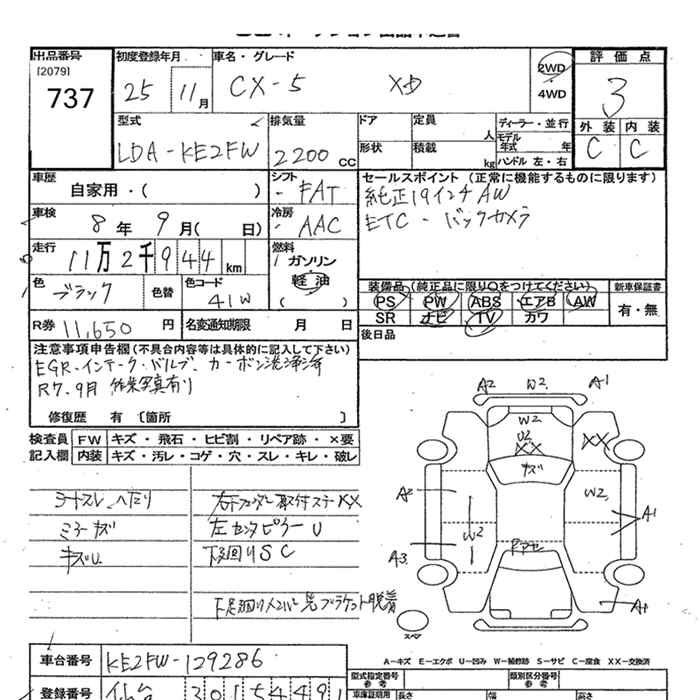 出品番号 初度登録年月 車名・グレード 評価点
[2079] 737 25 11月 CX-5 XD 2WD ・ 4WD 3
型式 排気量 ドア 定員 人 ディーラー・並行 外装 内装
LDA-KE2FW 2200 CC 形状 積載 kg モデル年式 年 ハンドル 左・右 C C
車歴 自家用・( ) シフト FAT セールスポイント (正常に機能するものに限ります)
純正19インチAW
車検 8年 9月( 日) 冷房 AAC
ETC・バックカメラ
走行 11万2千944km 燃料 ガソリン
軽油
( )
色 ブラック 色替 色コード 41W
装備品 (純正品に限り○をつけてください) 新車保証書
PS PW ABS エアB AW 有・無
SR ナビ TV カワ
R券 11,650円 名変通知期限 月 日 後日品
注意事項申告欄 (不具合内容等は具体的に記入して下さい)
EGR・インテーク・バルブ、カーボン洗浄済
R7.9月 作業写真有り
修復歴 有 〔箇所 〕
検査員記入欄 FW キズ・飛石・ヒビ割・リペア跡・×要
内装 キズ・汚レ・コゲ・穴・スレ・キレ・破レ
シートスレ、ヘタリ
ミラーキズ
キズU
右Fフェンダー取付ステーXX
左センタピラーU
下回りSC
A2 W2 A1
W2
U2
XX
XX
キズ
A2 W2 A1
W2
A3
A1
スペア
A-キズ E-エクボ U-凹み W-補修跡 S-サビ C-腐食 XX-交換済
車台番号 KE2FW-129286
型式指定番号 参考 類別区分番号 参考
登録番号 仙台 301 5 4491
車庫証明用 長さ 幅 高さ